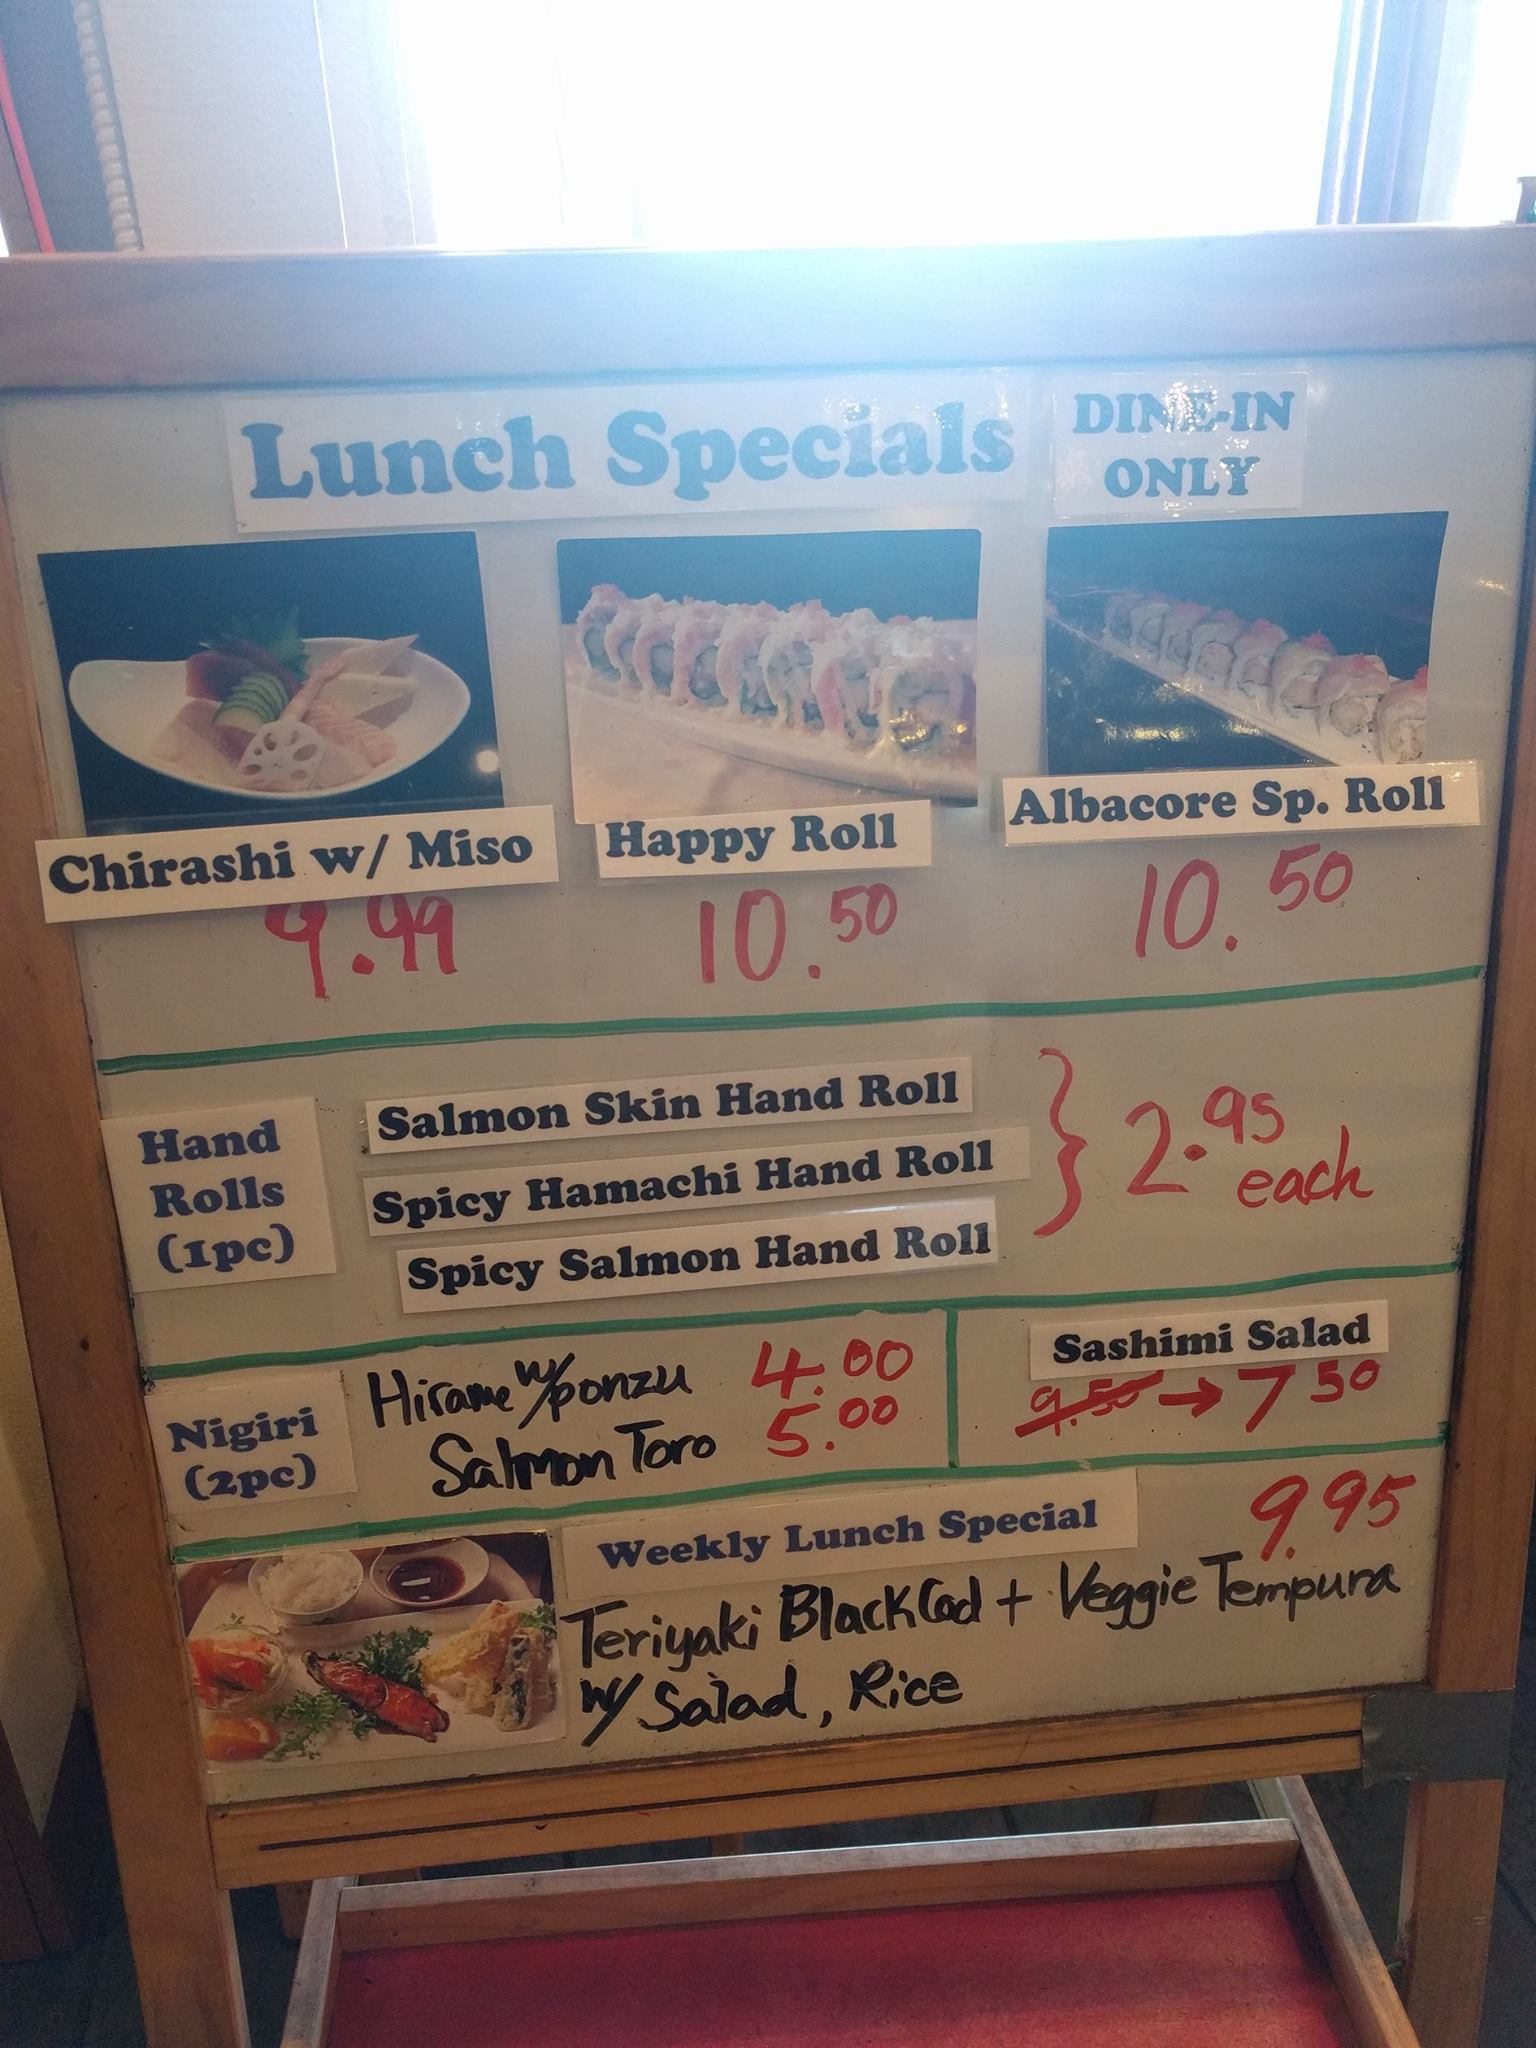 Lunch Specials
DINE-IN
ONLY
Chirashi w/ Miso
9.99
Happy Roll
10.50
Albacore Sp. Roll
10.50
Hand
Rolls
(1pc)
Salmon Skin Hand Roll
Spicy Hamachi Hand Roll
Spicy Salmon Hand Roll
} 2.95
each
Nigiri
(2pc)
Hirame w/ponzu 4.00
Salmon Toro 5.00
Sashimi Salad
9.50 → 7 50
Weekly Lunch Special 9.95
Teriyaki Black Cod + Veggie Tempura
w/ Salad, Rice